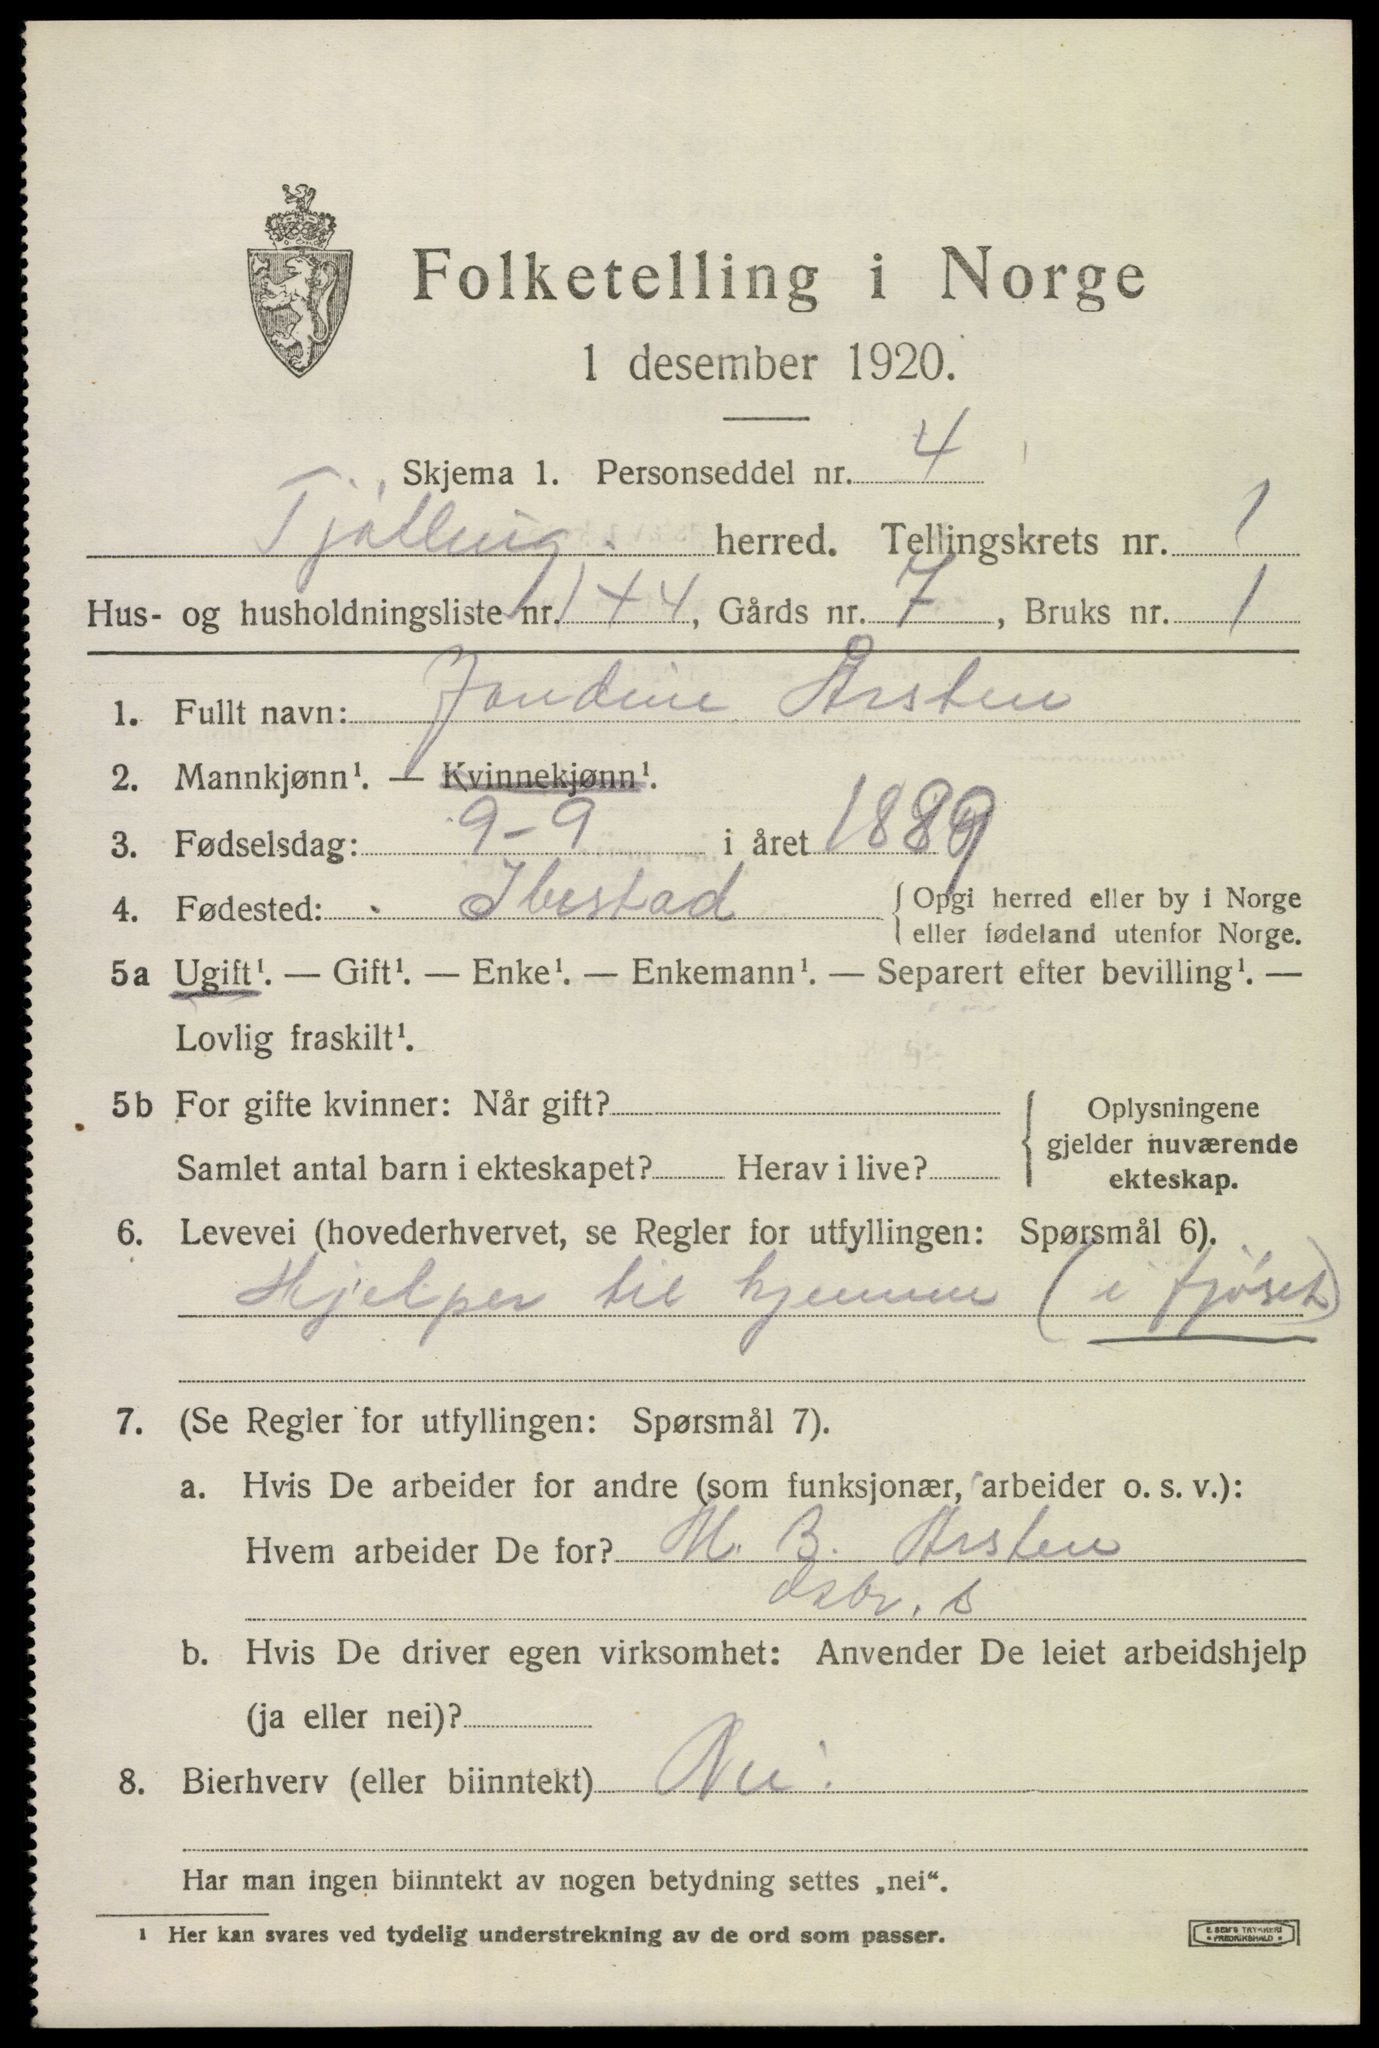 Folketelling i Norge
1 desember 1920.
Skjema 1. Personseddel nr. 4
Tjølling herred. Tellingskrets nr. 1
Hus- og husholdningsliste nr. 144, Gårds nr. 7, Bruks nr. 1
1. Fullt navn: Jondine Årsten
2. Mannkjønn¹. — Kvinnekjønn¹.
3. Fødselsdag: 9-9 i året 1889
4. Fødested: Ibestad { Opgi herred eller by i Norge
eller fødeland utenfor Norge.
5a Ugift¹. — Gift¹. — Enke¹. — Enkemann¹. — Separert efter bevilling¹. —
Lovlig fraskilt¹.
5b For gifte kvinner: Når gift?
Samlet antal barn i ekteskapet? Herav i live?
Oplysningene
gjelder nuværende
ekteskap.
6. Levevei (hovederhvervet, se Regler for utfyllingen: Spørsmål 6).
Hjelper til hjemme (i fjøset)
7. (Se Regler for utfyllingen: Spørsmål 7).
a. Hvis De arbeider for andre (som funksjonær, arbeider o. s. v.):
Hvem arbeider De for? M. B. Årsten
b. Hvis De driver egen virksomhet: Anvender De leiet arbeidshjelp
(ja eller nei)?
8. Bierhverv (eller biinntekt) Nei.
Har man ingen biinntekt av nogen betydning settes „nei“.
¹ Her kan svares ved tydelig understrekning av de ord som passer.
E. SEM'S TRYKKERI
FREDRIKSHALD